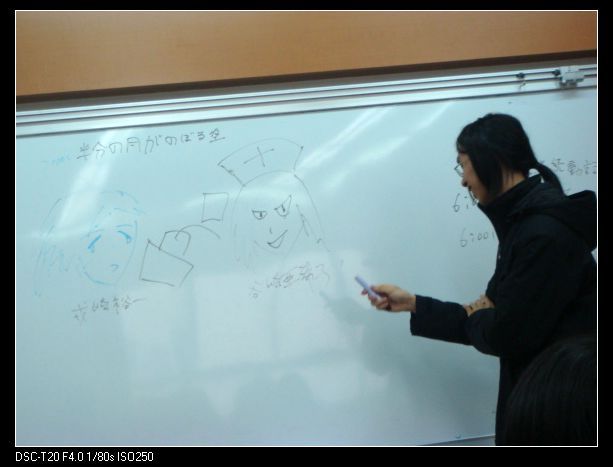 半分の月がのぼる空
戎崎裕一
谷崎亜希子
6:
6:00
DSC-T20 F4.0 1/80s ISO250